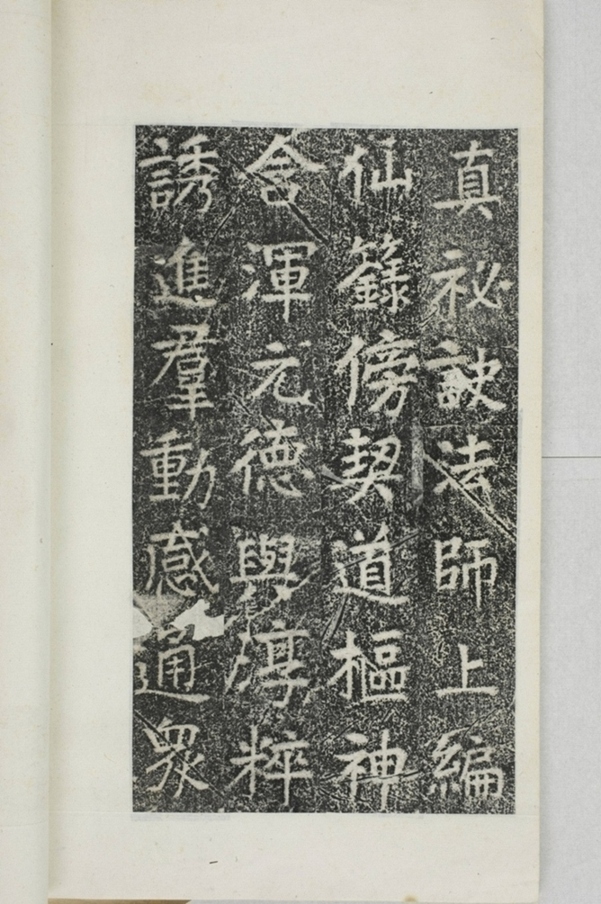 真祕訣法師上編
仙籙傍契道樞神
含渾元德與淳粹
誘進羣動感通衆